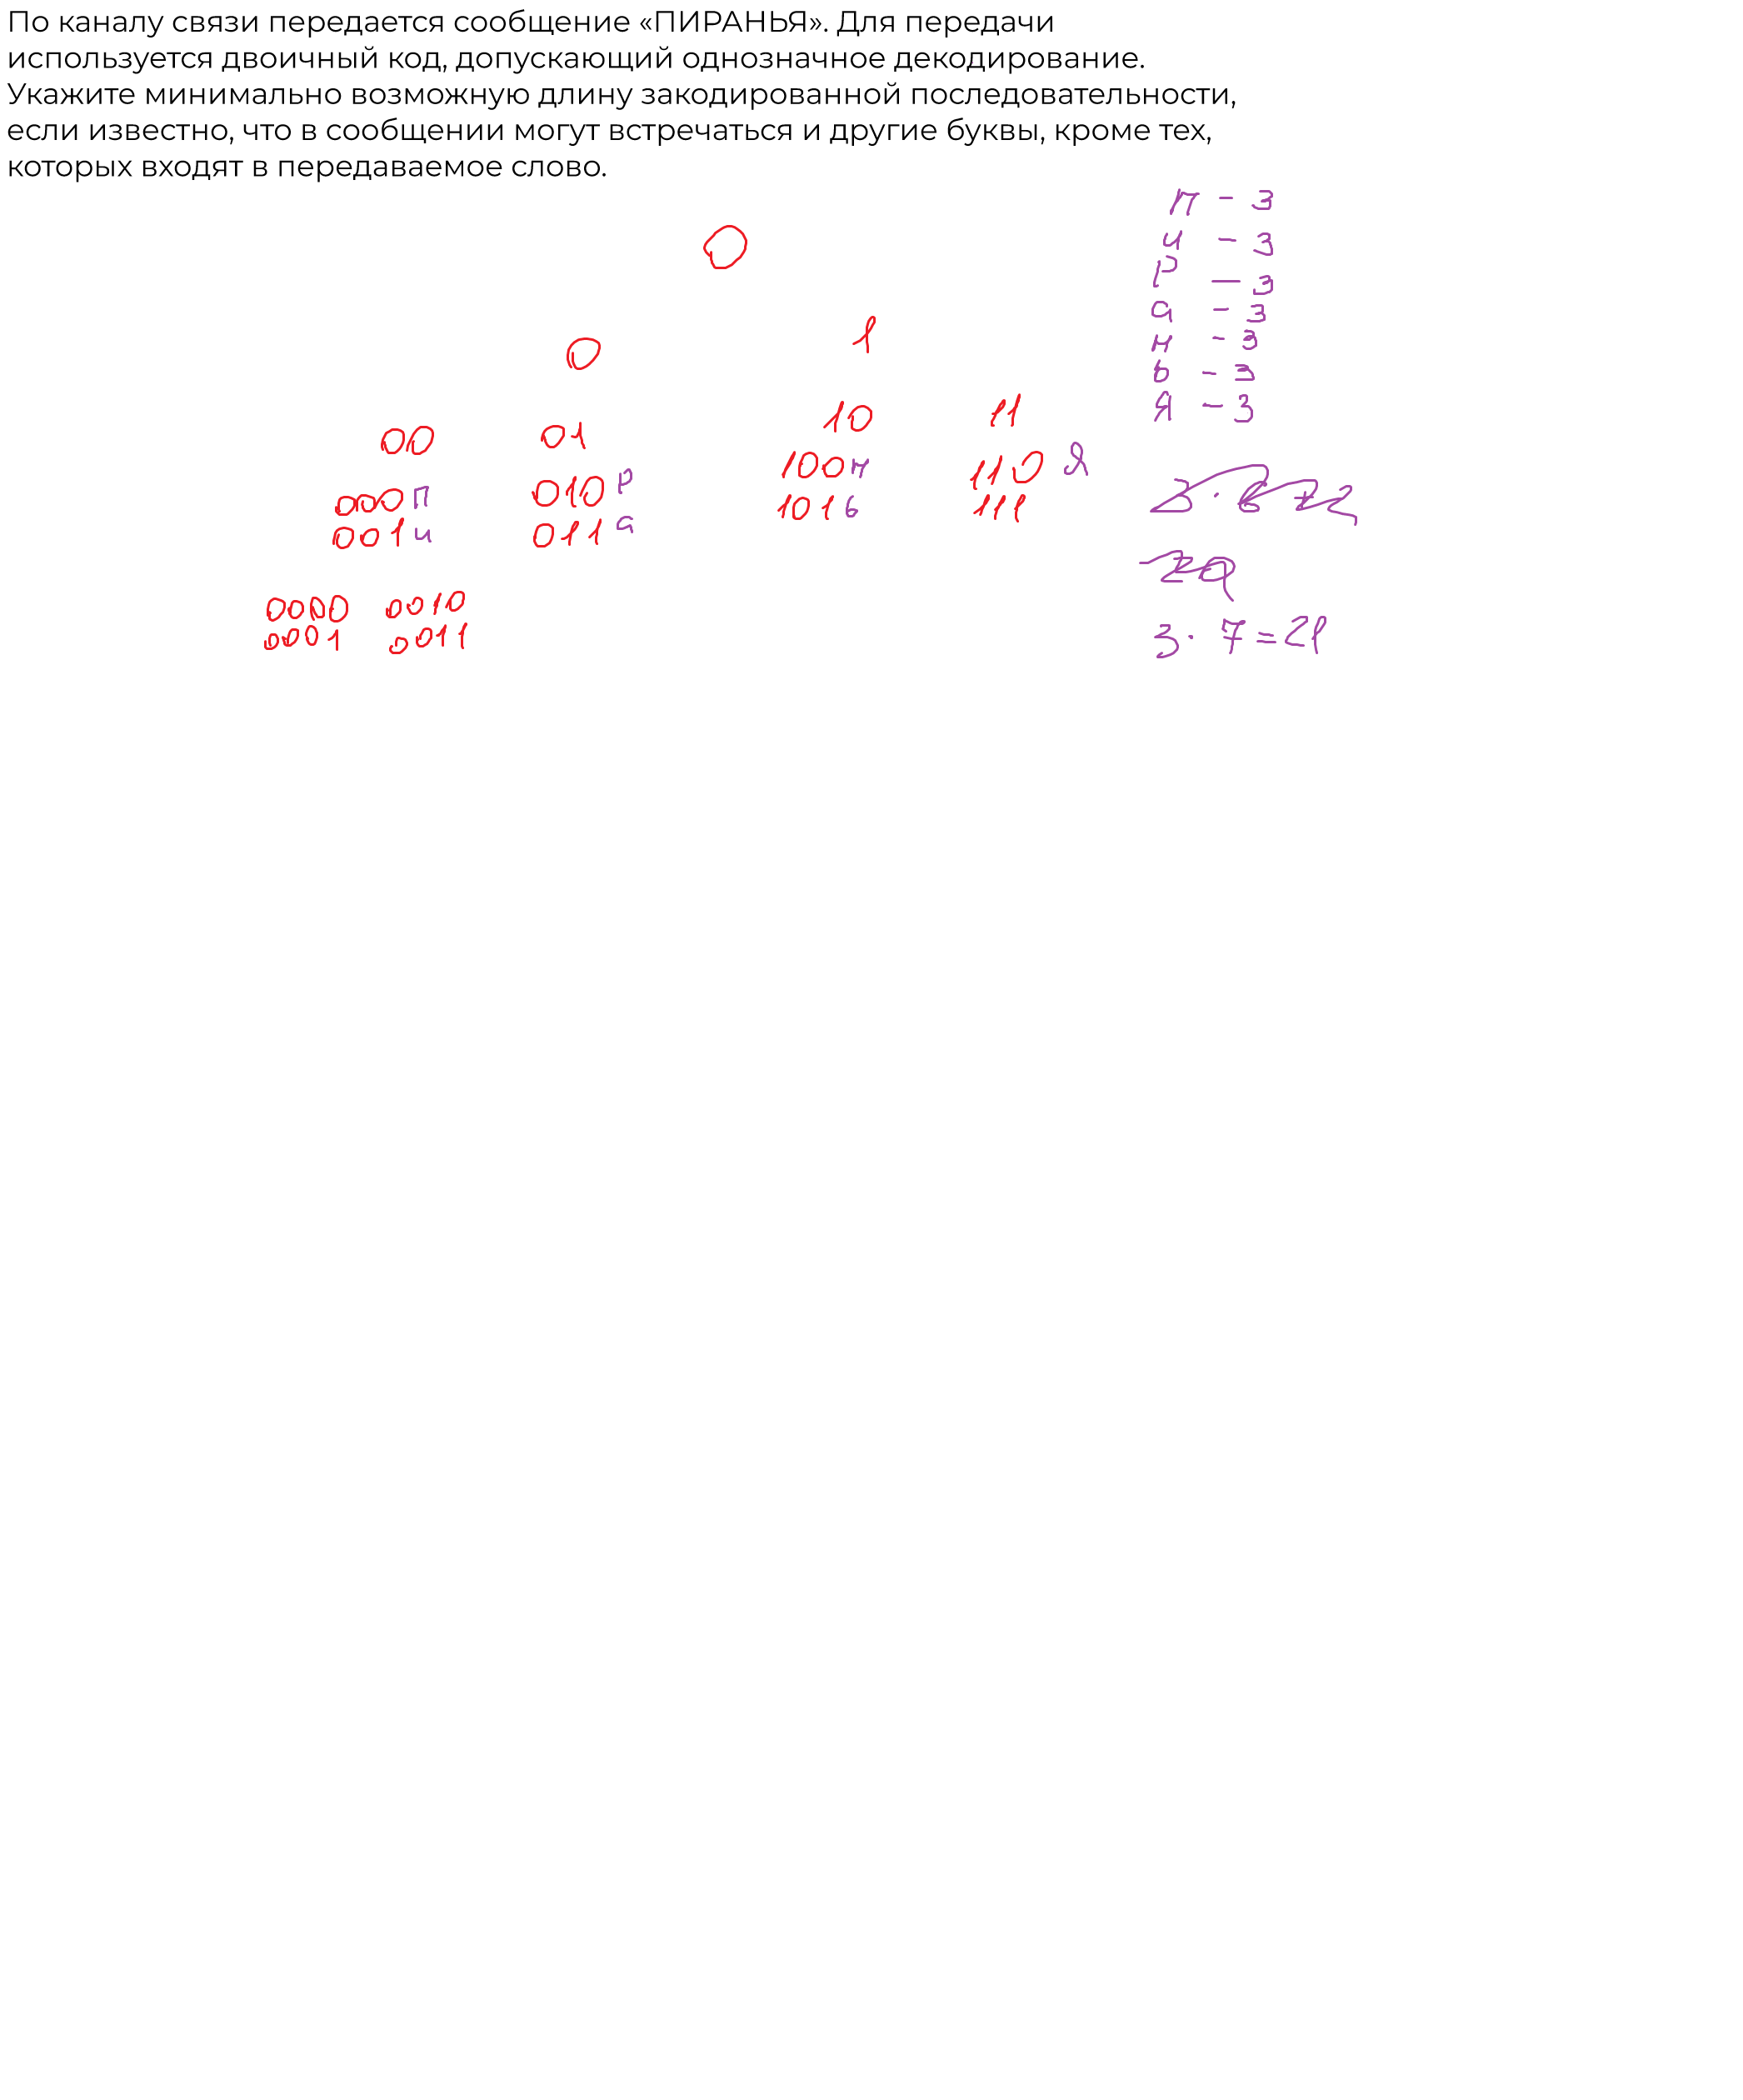 По каналу связи передается сообщение «ПИРАНЬЯ». Для передачи
используется двоичный код, допускающий однозначное декодирование.
Укажите минимально возможную длину закодированной последовательности,
если известно, что в сообщении могут встречаться и другие буквы, кроме тех,
которых входят в передаваемое слово.
П - 3
и - 3
Р - 3
а - 3
н - 3
ь - 3
Я - 3
0
0 1
00 01 10 11
000 П 010 Р 100 н 110 Я
001 и 011 а 101 ь 111
0000 0010
0001 0011
3 · 7 = 21